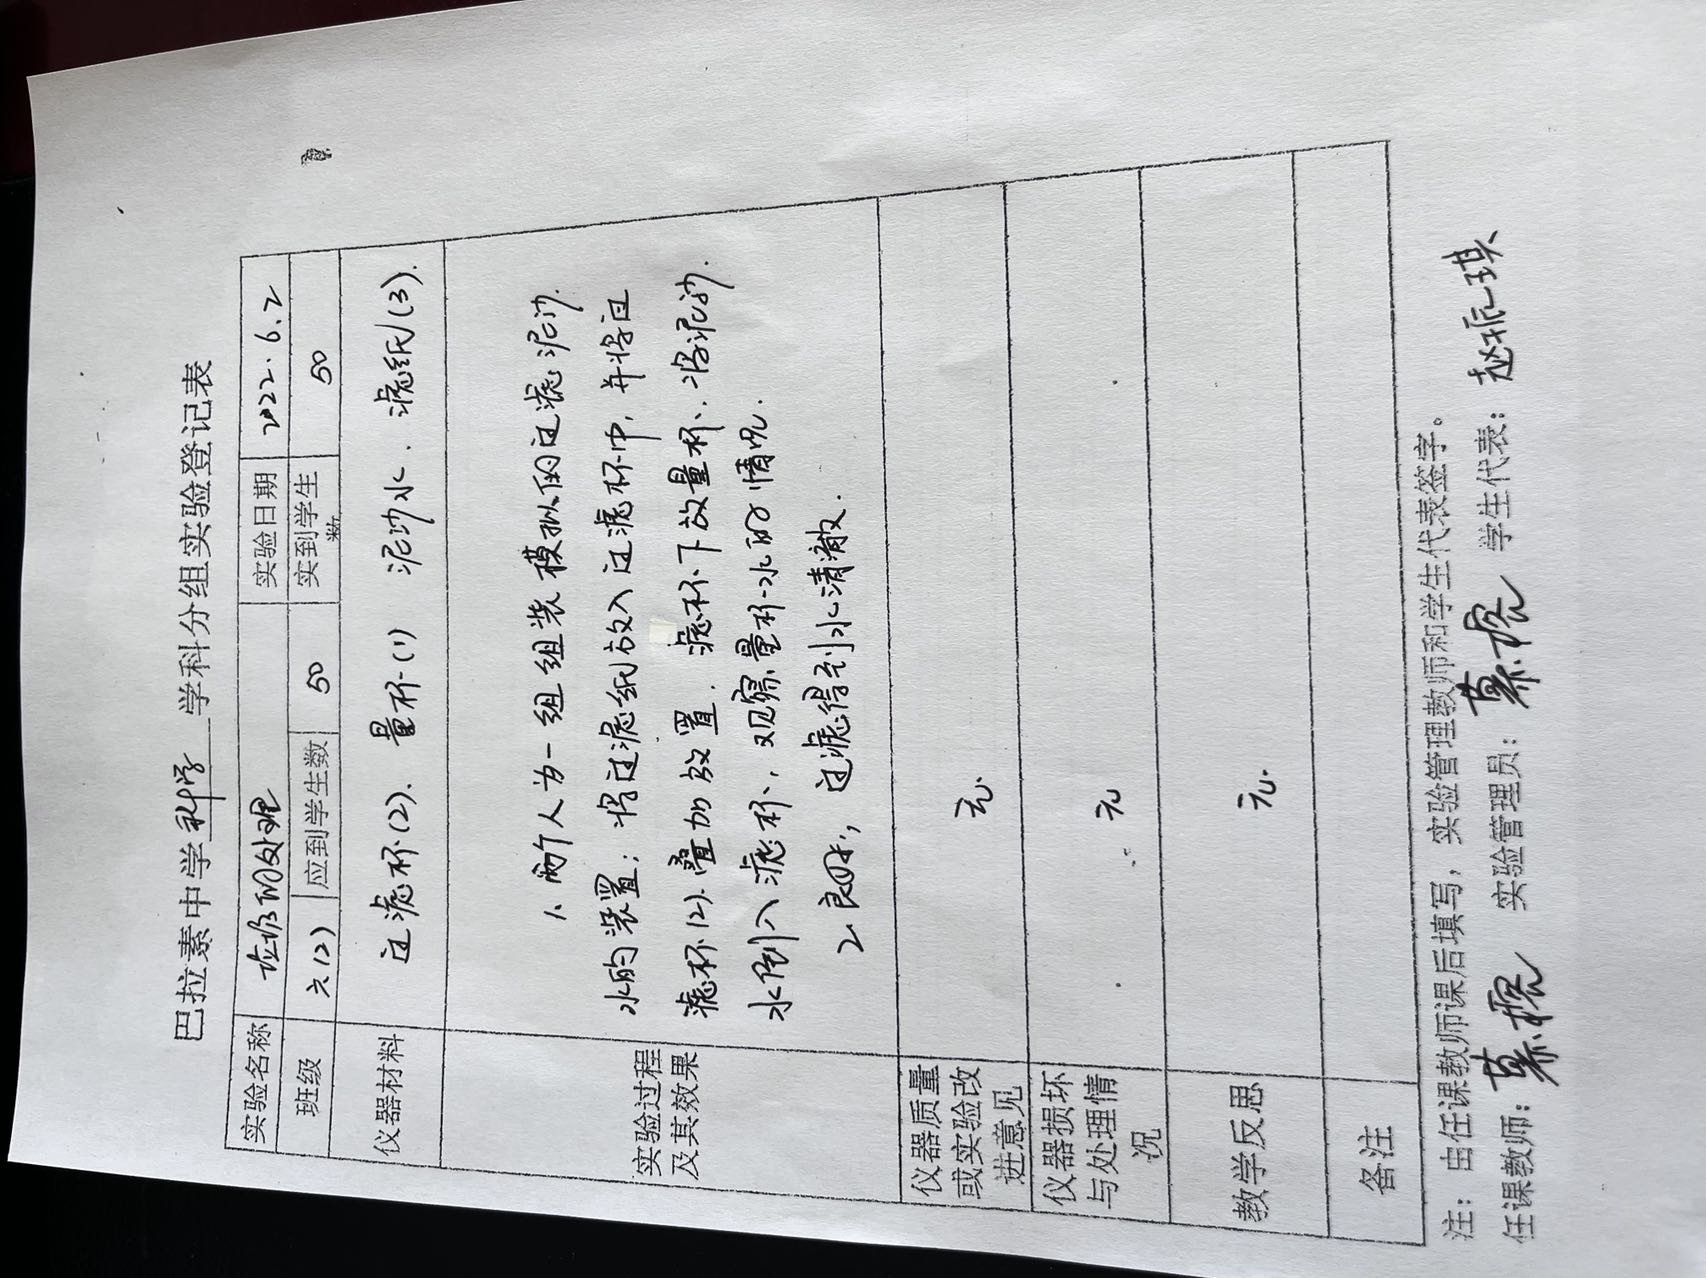 巴拉素中学 科学 学科分组实验登记表
实验名称 垃圾的处理 实验日期 2022.6.2
班级 六(2) 应到学生数 50 实到学生数 50
仪器材料 过滤杯(2). 量杯(1) 泥沙水. 滤纸(3).
实验过程及其效果
1、两个人为一组组装模拟的过滤泥沙
水的装置; 将过滤纸放入过滤杯中, 并将过
滤杯(2)叠加放置. 滤杯下放量杯. 将泥沙
水倒入滤杯, 观察量杯水的情况.
2 良好, 过滤得到水清澈.
仪器质量或实验改进意见 无.
仪器损坏与处理情况 无
教学反思 无.
备注
注: 由任课教师课后填写, 实验管理教师和学生代表签字。
任课教师: 实验管理员: 学生代表: 赵振琪